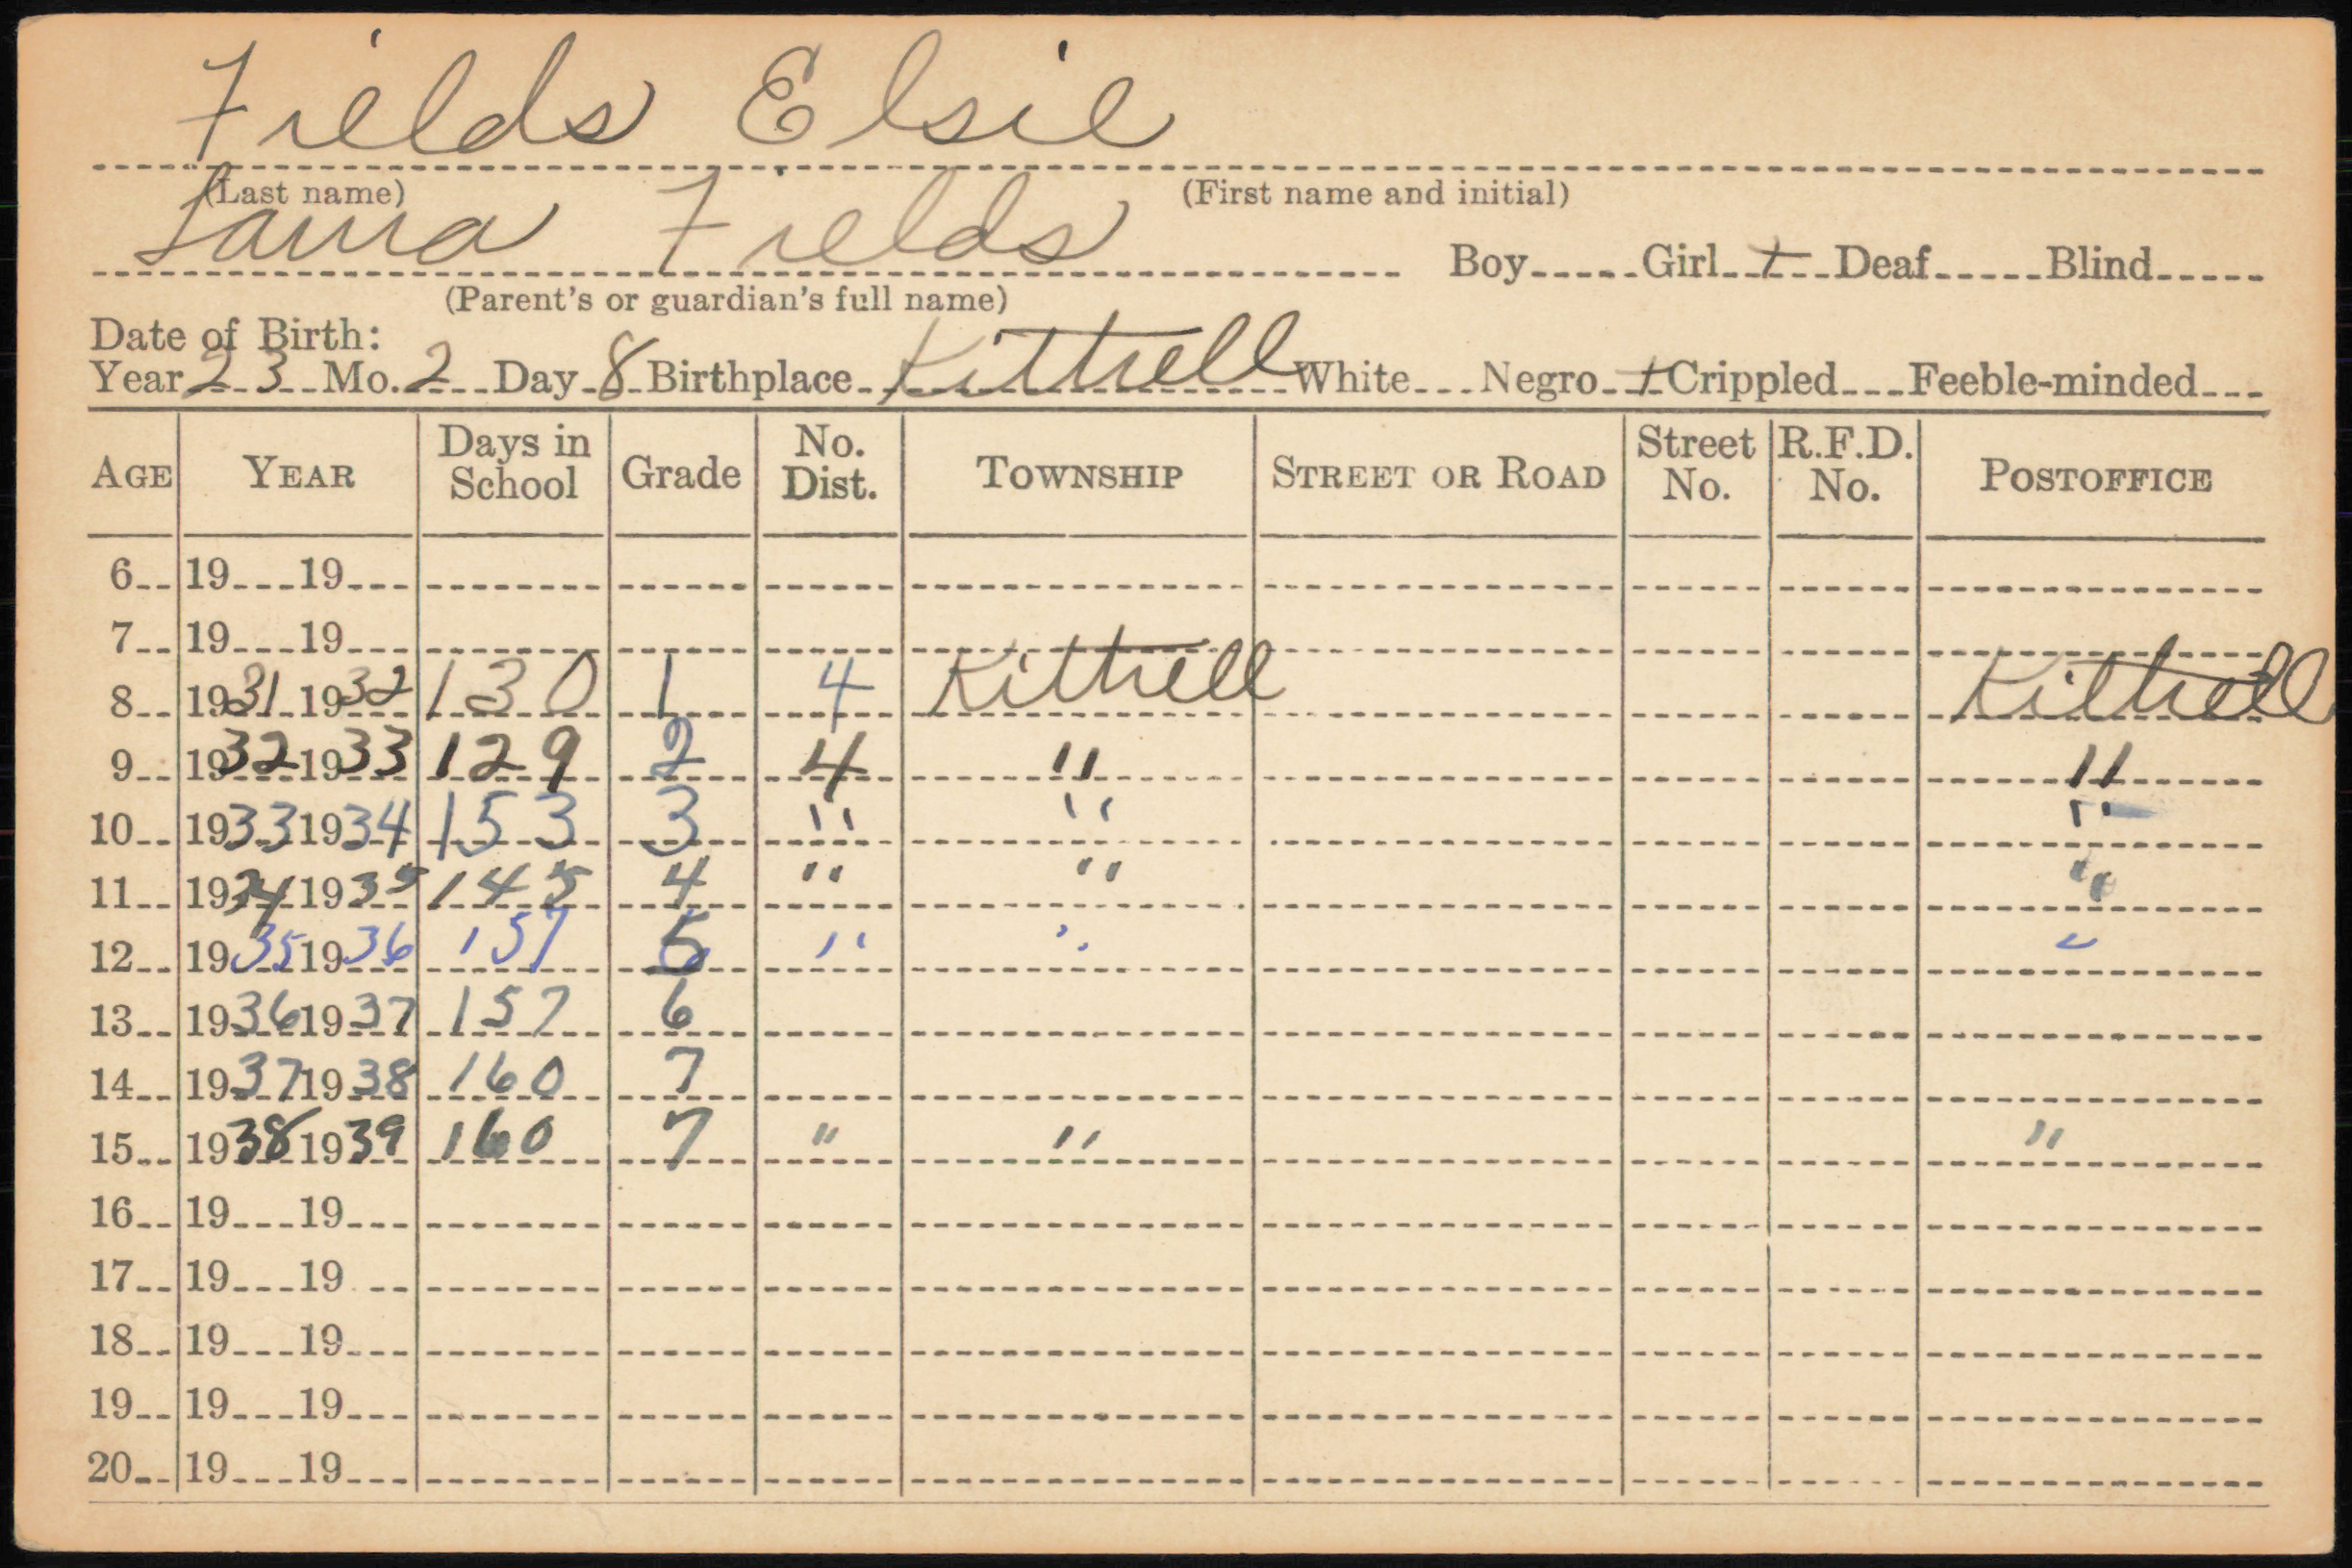 Fields Elsie
(Last name) (First name and initial)
Laura Fields Boy Girl + Deaf Blind
(Parent's or guardian's full name)
Date of Birth:
Year 23 Mo. 2 Day 8 Birthplace Kittrell White Negro + Crippled Feeble-minded
AGE YEAR Days in School Grade No. Dist. TOWNSHIP STREET OR ROAD Street No. R.F.D. No. POSTOFFICE
6 19 19
7 19 19
8 1931 1932 130 1 4 Kittrell Kittrell
9 1932 1933 129 2 4 " "
10 1933 1934 153 3 " " "
11 1934 1935 145 4 " " "
12 1935 1936 157 5 " " "
13 1936 1937 157 6
14 1937 1938 160 7
15 1938 1939 160 7 " " "
16 19 19
17 19 19
18 19 19
19 19 19
20 19 19